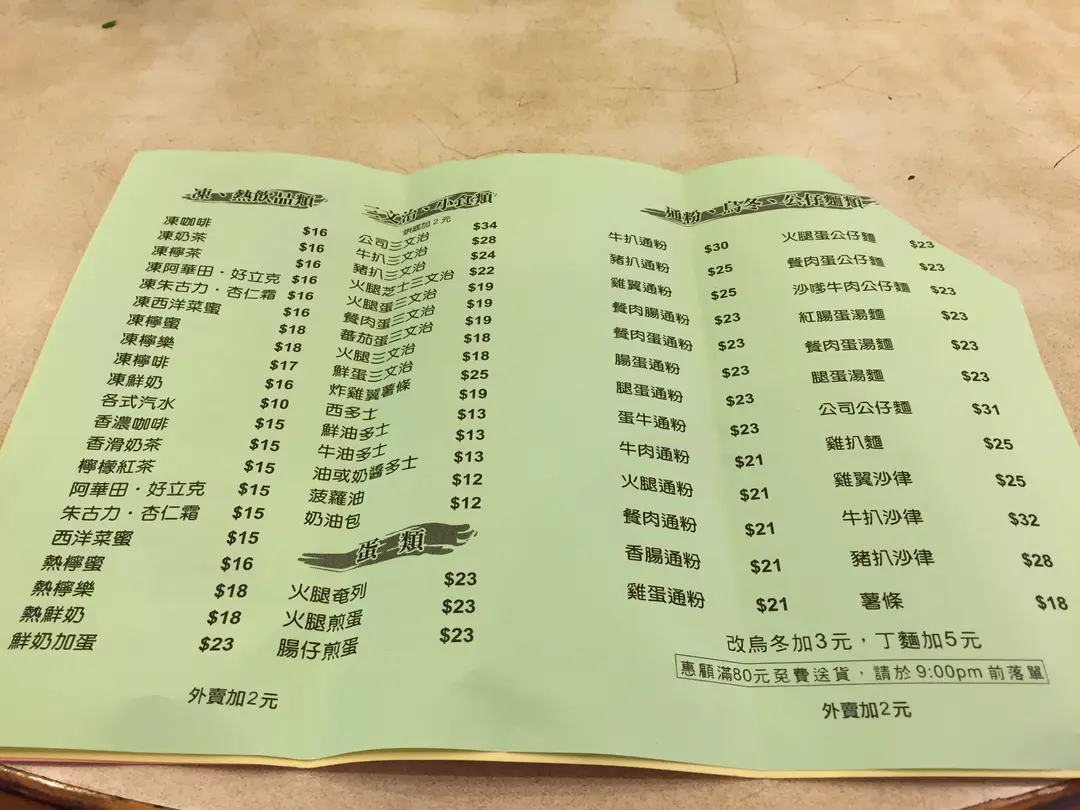 凍、熱飲品類
凍咖啡 $16
凍奶茶 $16
凍檸茶 $16
凍阿華田・好立克 $16
凍朱古力・杏仁霜 $16
凍西洋菜蜜 $16
凍檸蜜 $18
凍檸樂 $18
凍檸啡 $17
凍鮮奶 $16
各式汽水 $10
香濃咖啡 $15
香滑奶茶 $15
檸檬紅茶 $15
阿華田・好立克 $15
朱古力・杏仁霜 $15
西洋菜蜜 $15
熱檸蜜 $16
熱檸樂 $18
熱鮮奶 $18
鮮奶加蛋 $23
外賣加2元
三文治、小食類
烘底加2元
公司三文治 $34
牛扒三文治 $28
豬扒三文治 $24
火腿芝士三文治 $22
火腿蛋三文治 $19
餐肉蛋三文治 $19
蕃茄蛋三文治 $19
火腿三文治 $18
鮮蛋三文治 $18
炸雞翼薯條 $25
西多士 $19
鮮油多士 $13
牛油多士 $13
油或奶醬多士 $13
菠蘿油 $12
奶油包 $12
蛋類
火腿奄列 $23
火腿煎蛋 $23
腸仔煎蛋 $23
通粉、烏冬、公仔麵類
牛扒通粉 $30
豬扒通粉 $25
雞翼通粉 $25
餐肉腸通粉 $23
餐肉蛋通粉 $23
腸蛋通粉 $23
腿蛋通粉 $23
蛋牛通粉 $23
牛肉通粉 $21
火腿通粉 $21
餐肉通粉 $21
香腸通粉 $21
雞蛋通粉 $21
火腿蛋公仔麵 $23
餐肉蛋公仔麵 $23
沙嗲牛肉公仔麵 $23
紅腸蛋湯麵 $23
餐肉蛋湯麵 $23
腿蛋湯麵 $23
公司公仔麵 $31
雞扒麵 $25
雞翼沙律 $25
牛扒沙律 $32
豬扒沙律 $28
薯條 $18
改烏冬加3元，丁麵加5元
惠顧滿80元免費送貨，請於9:00pm前落單
外賣加2元